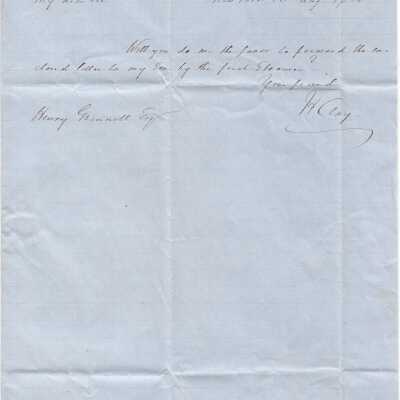 My dear Sir
Will you do me the favor to forward the en-
closed letter to my Son by the first Steamer?
Your friend
H Clay
Henry Grinnell Esq